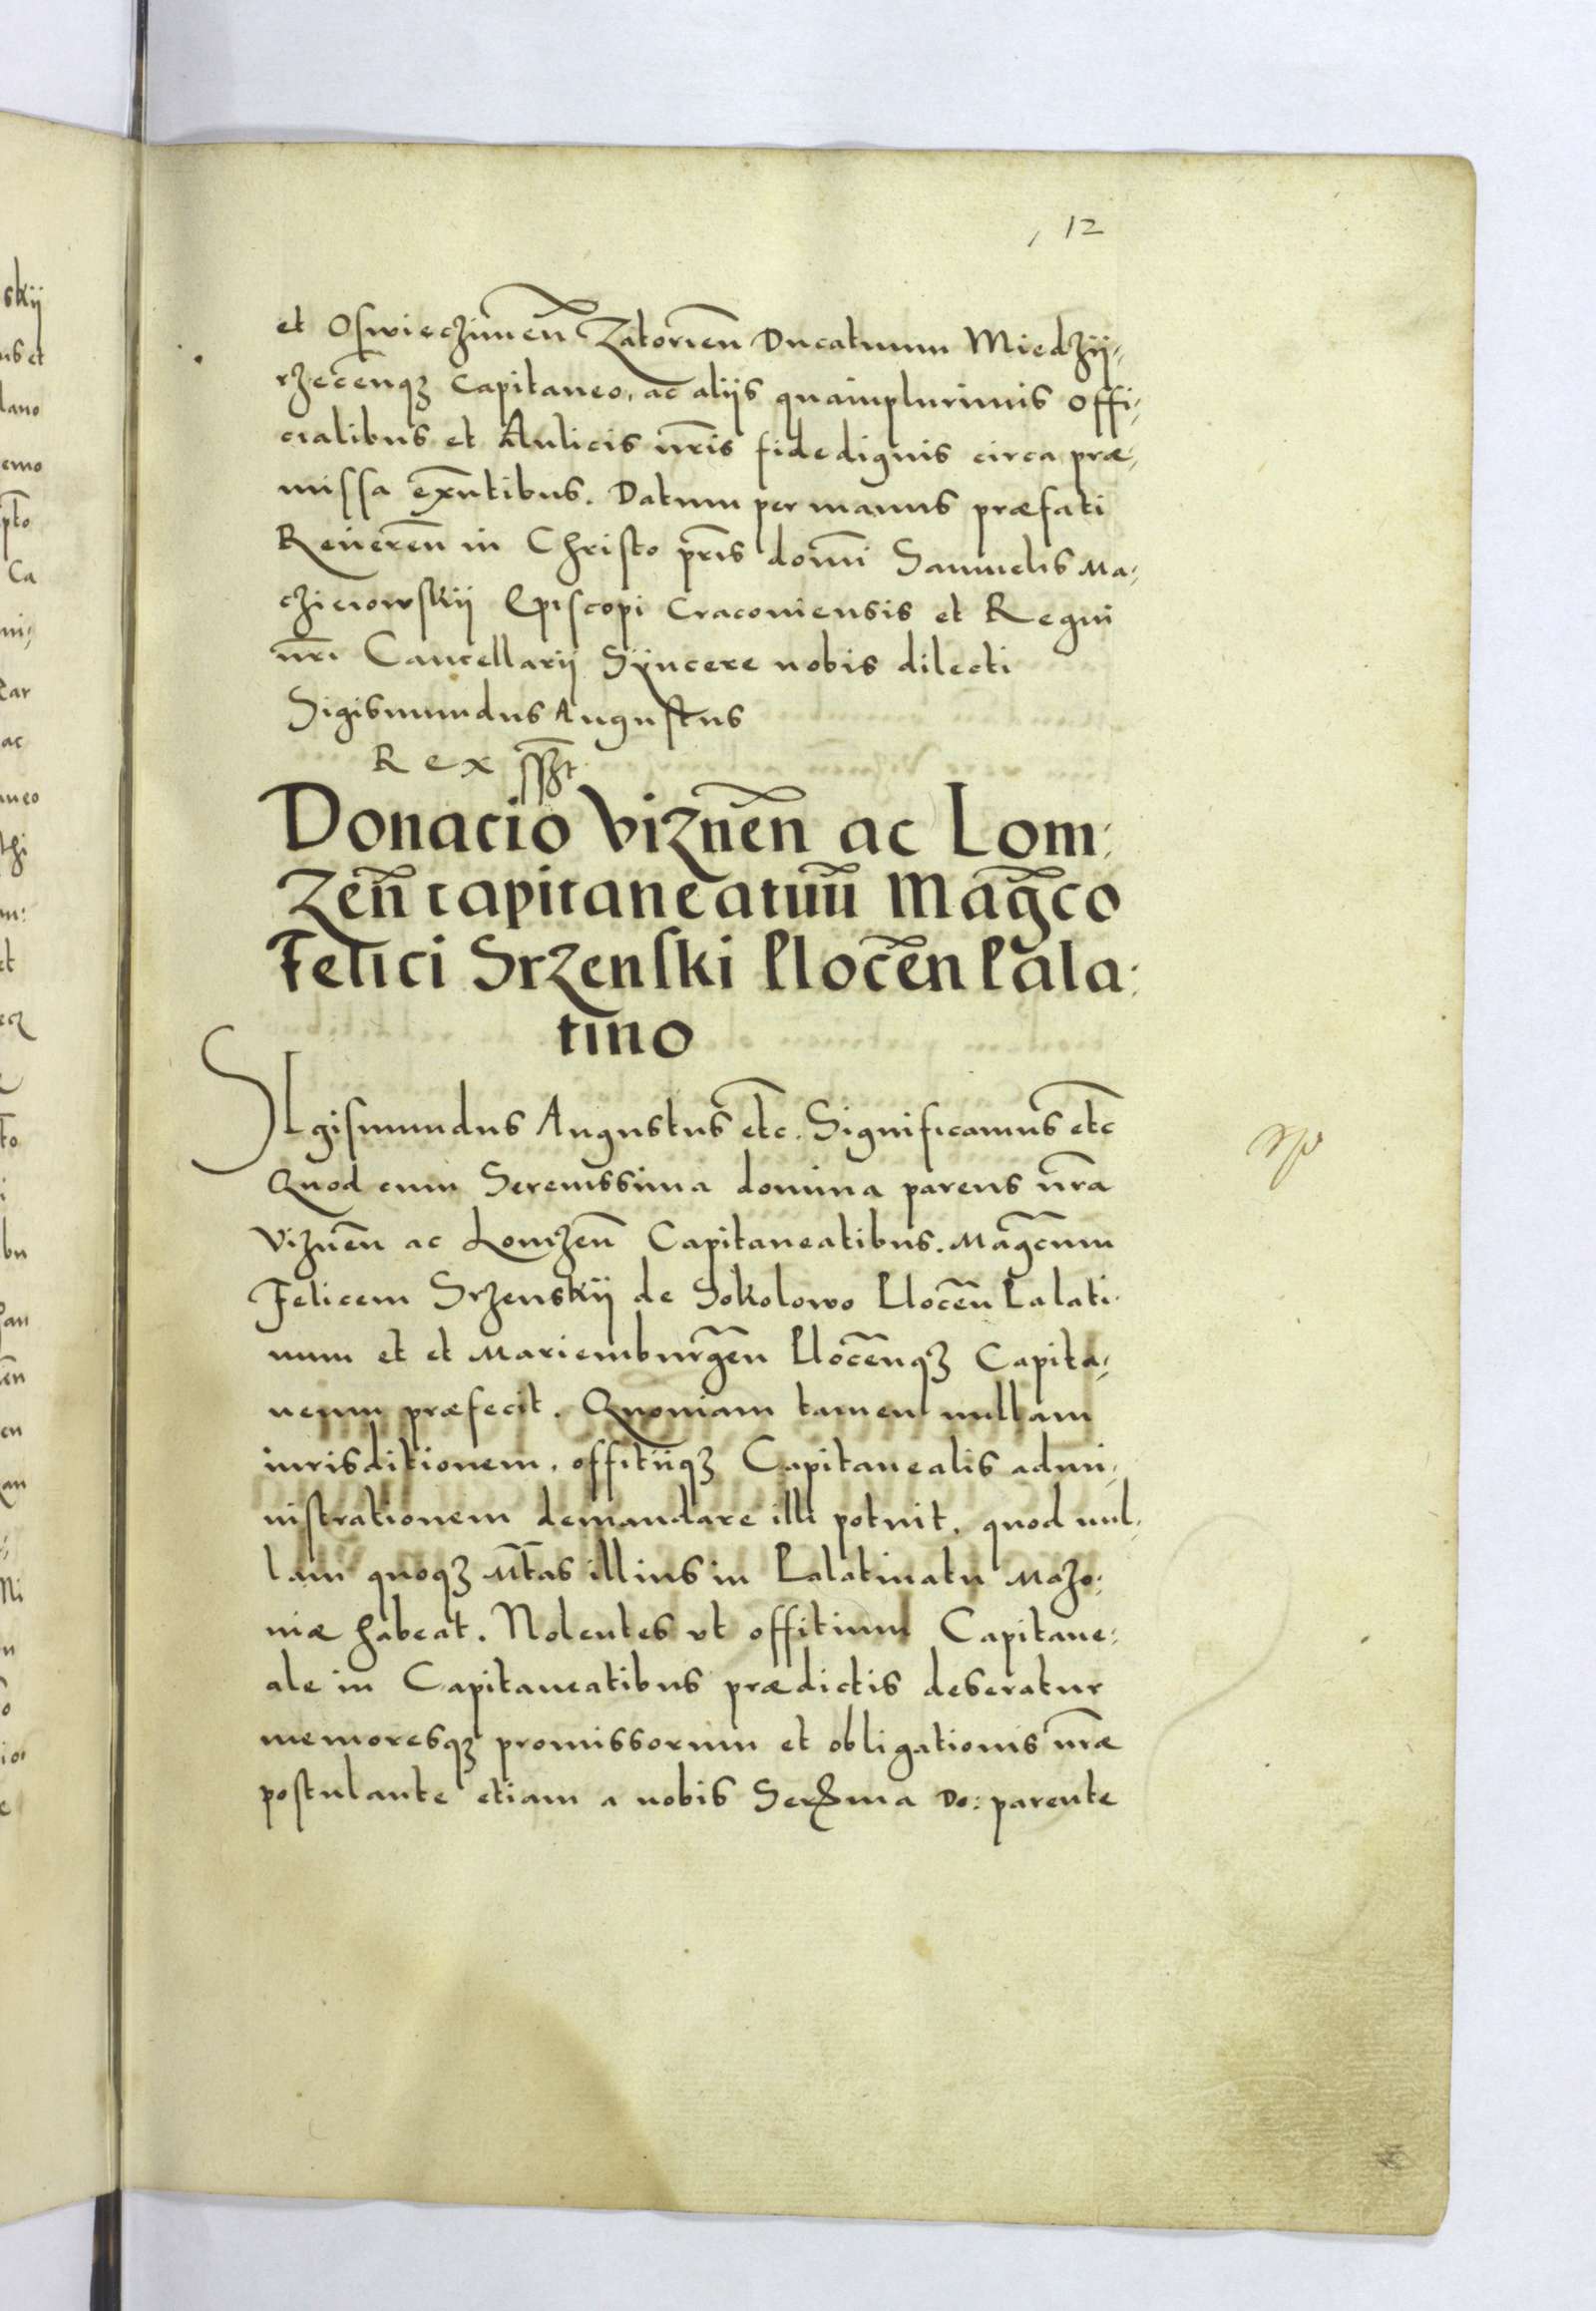 12
et Oswieczimen̄ Zatorien̄ Ducatuum Miedzÿ-
rzecen̄qȝ Capitaneo, ac aliis quamplurimis Offi-
cialibus et Aulicis nr̄is fidedignis circa præ-
missa ex̄ntibus. Datum per manus præfati
Reveren̄ in Christo pr̄is domī Samuelis Ma-
czieiowskij Episcopi Cracoviensis et Regni
nr̄i Cancellarij Sÿncere nobis dilecti
Sigismundus Augustus
Rex
Donacio Viznēn ac Lom:
Zen̄ capitaneatuū Mag̃co
Felici Srzenski Plocēn Pala:
tino
SIgismundus Augustus etc̄. Significamus etc̄
Quod cum Serenissima domina parens nr̄a
Viznēn ac Lomzen̄ Capitaneatibus. Mag̃cum
Felicem Srzenskij de Sokolowo Plocēn Palati-
num et et Mariemburgēn Plocēnqȝ Capita-
neum præfecit. Quoniam tamen nullam
iurisditionem, offitiiqȝ Capitanealis admi-
nistrationem demandare illi potuit, quod nul-
lam quoqȝ Mt̄as illius in Palatinatu Mazo-
uiæ habeat. Nolentes vt offitium Capitane-
ale in Capitaneatibus prædictis deseratur
memoresqȝ promissorum et obligationis nr̄æ
postulante etiam a nobis Serx̄ma Do: parente